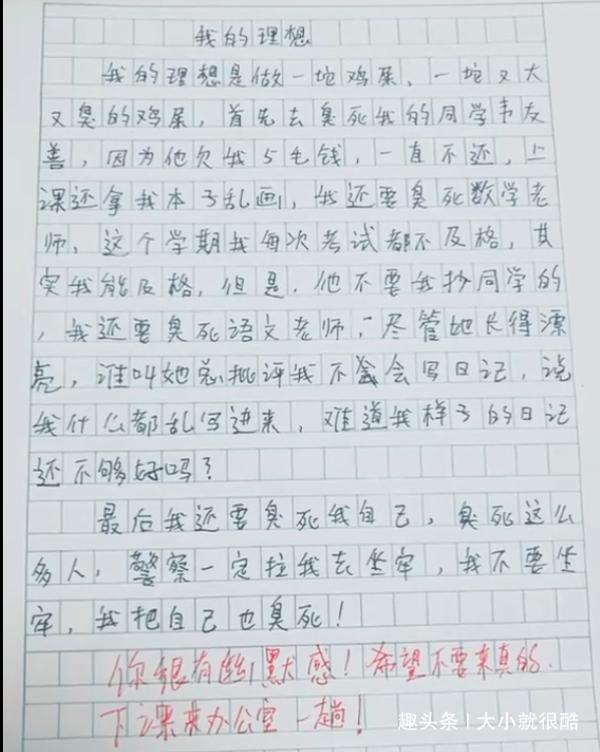 我的理想
我的理想是做一坨鸡屎,一坨又大
又臭的鸡屎,首先去臭死我的同学韦友
善,因为他欠我5毛钱,一直不还,上
课还拿我本子乱画,我还要臭死数学老
师,这个学期我每次考试都不及格,其
实我能及格,但是,他不要我抄同学的
,我还要臭死语文老师,尽管她长得漂
亮,谁叫她总批评我不会写日记,说
我什么都乱写进来,难道我样子的日记
还不够好吗?
最后我还要臭死我自己,臭死这么
多人,警察一定拉我去坐牢,我不要坐
牢,我把自己也臭死!
你很有幽默感!希望不要来真的.
下课来办公室一趟!
趣头条 | 大小就很酷